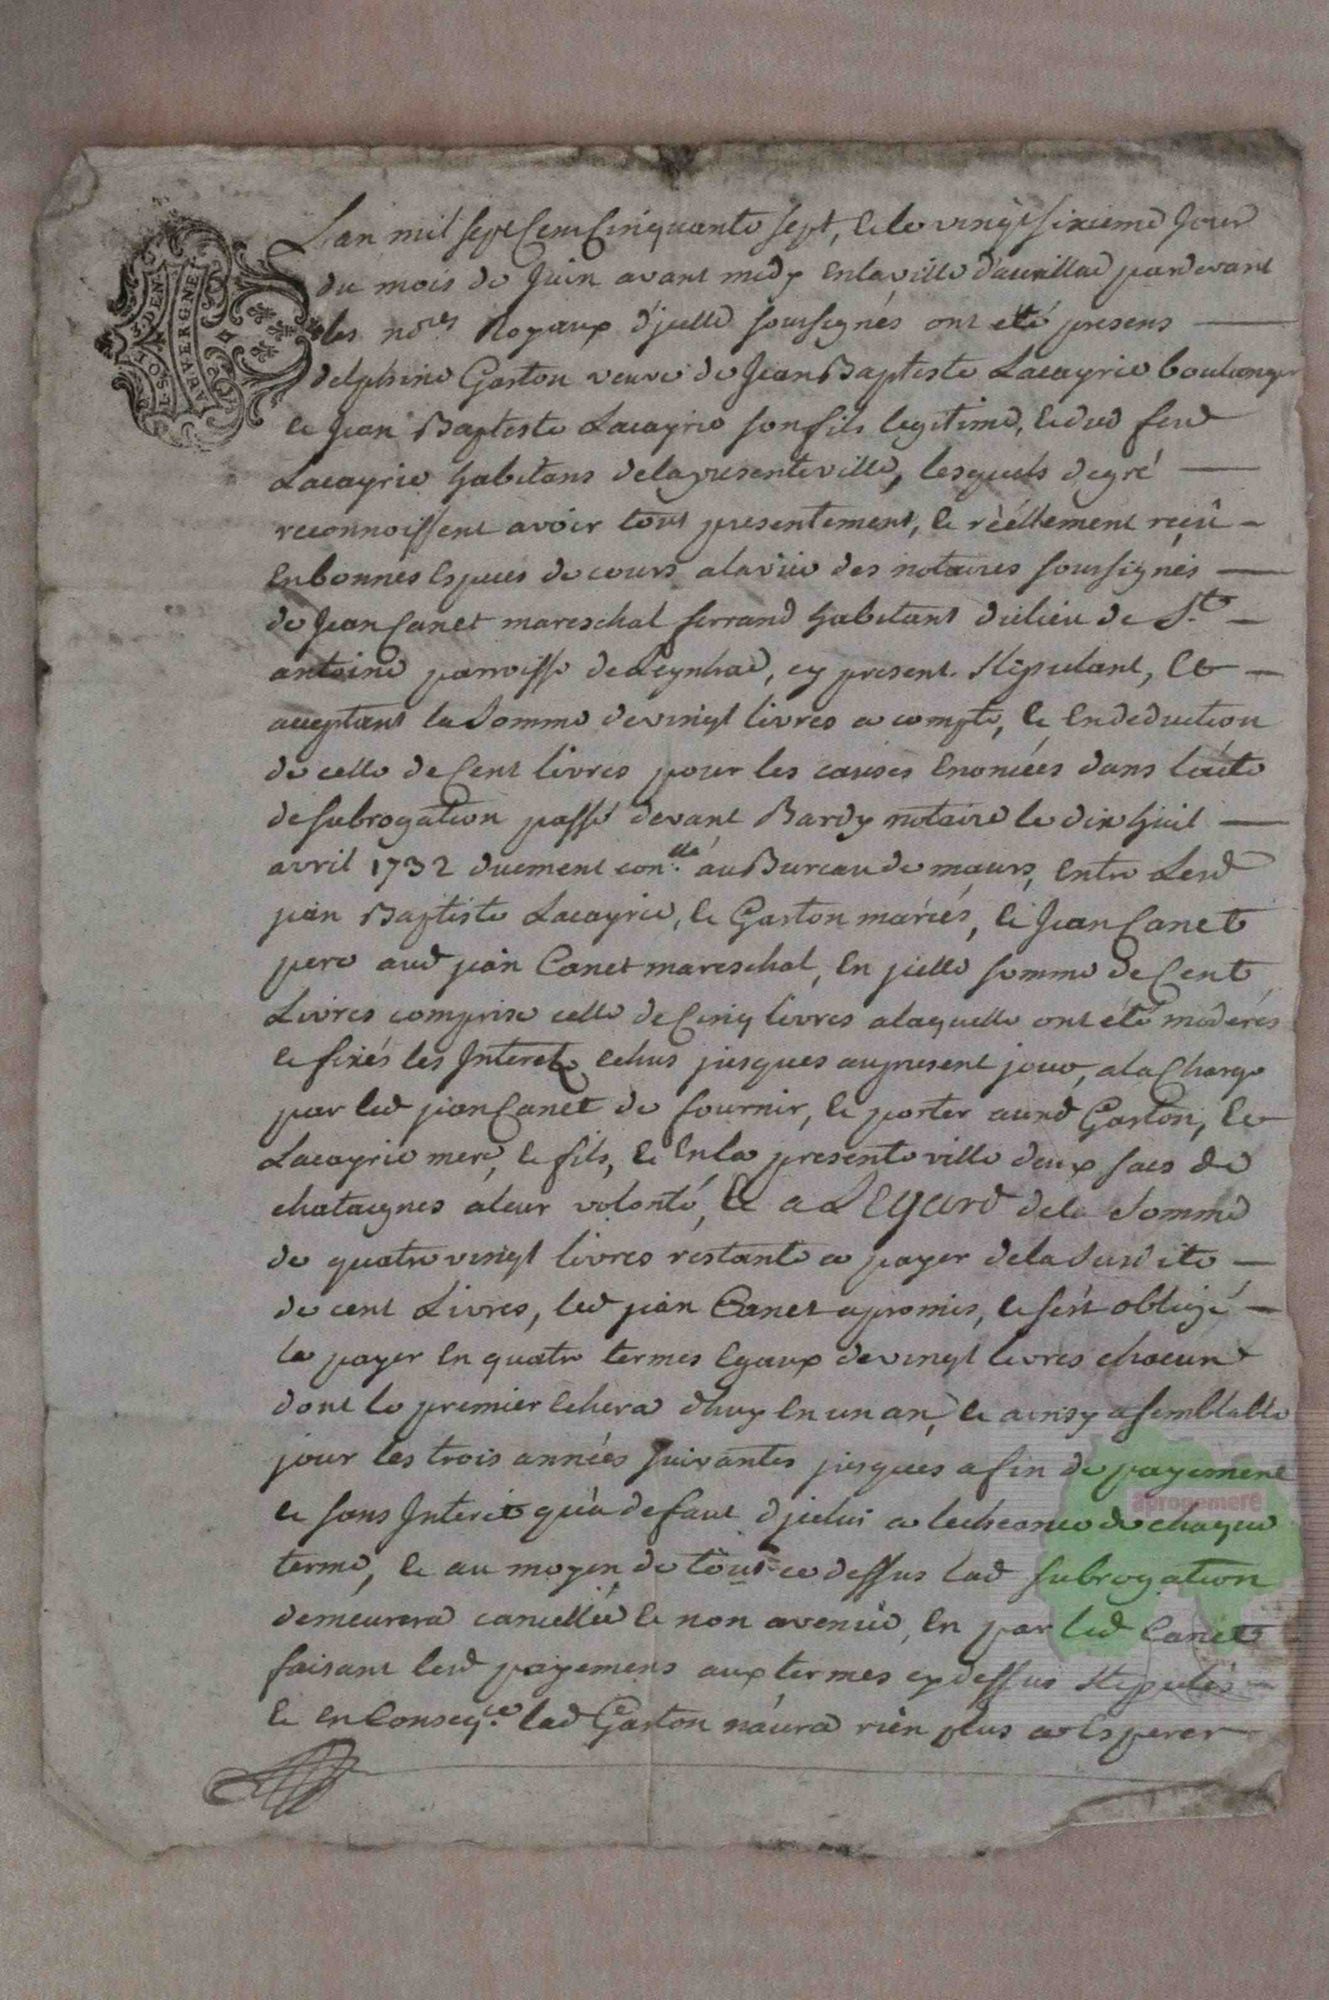 L'an mil sept Cens Cinquante sept, et le vingt sixieme Jour
du mois de Juin avant midy en la ville d'aurillac pardevant
les no.res Royaux d'jcelle soussignés ont eté presens
delphine Gaston veuve de Jean Baptiste Lacayrie boulanger
et Jean Baptiste Lacayrie son fils legitime, et dud feud
Lacayrie habitans de la presente ville, lesquels de gré
reconnoissent avoir tout presentement, et réellement reçû
En bonnes Especes de cours a la vüe des notaires soussignés
de Jean Canet mareschal ferrand habitant du lieu de S.t
antoine parroisse de Leynhac, cy present stipulant, et
acceptant la Somme de vingt livres a compte, et En deduction
de celle de Cent livres pour les causes Enoncées dans l'acte
de subrogation passé devant Bardy notaire le dix huit
avril 1732 duement con.llé au Bureau de maurs, Entre Lesd
jean Baptiste Lacayrie, et Gaston mariés, et Jean Canet
pere aud jean Canet mareschal, En jcelle somme de Cent
Livres comprise celle de Cinq livres a laquelle ont été modérés
et fixés les Interets Echus jusques au present jour, a la Charge
par led jean Canet de fournir, et porter auxd Gaston, et
Lacayrie mere, et fils, et En la presente ville deux sacs de
chataignes a leur volonté, Et a L'Egard de la Somme
de quatre vingt livres restante a payer de la Susdite
de cent Livres, led jean Canet a promis, et s'est obligé
la payer En quatre termes Egaux de vingt livres chacun
dont le premier Echera d'huy En un an, et ainsy a semblable
jour les trois années suivantes jusques a fin de payement
et sans Interêt qu'a defaut d'jcelui a l'echeance de chaque
terme, et au moyen de tout ce dessus lad subrogation
demeurera cancellée et non avenüe, En par led Canet
faisant lesd payemens aux termes cy dessus stipulés
et en Conseq.ce lad Gaston n'aura rien plus a Esperer
G
DEN
AUVERGNE
aprogemere